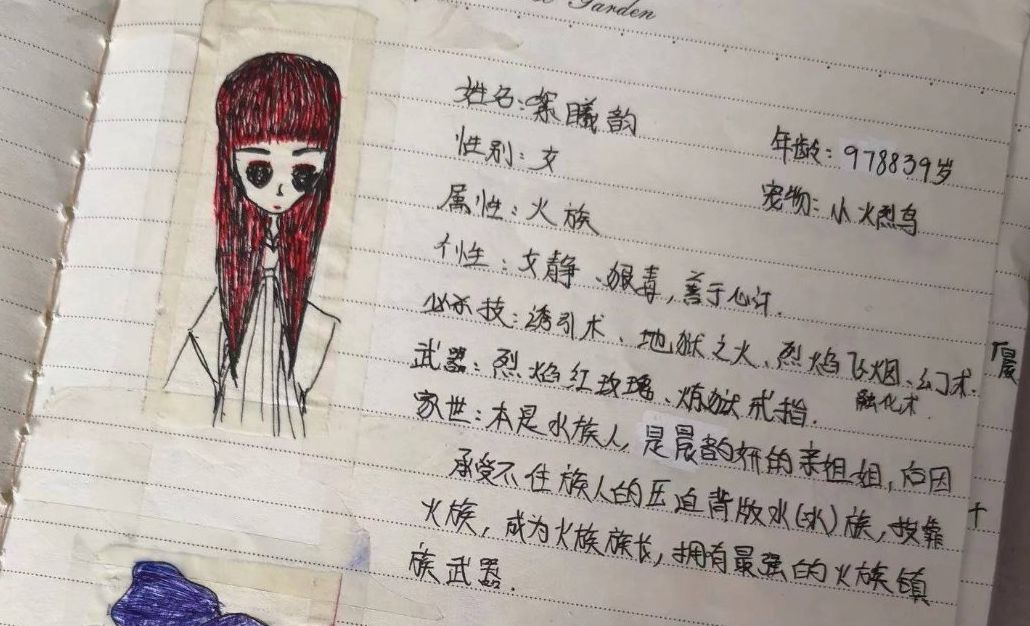 Garden
姓名：寀曦韵
性别：女 年龄：978839岁
属性：火族 宠物：小火烈鸟
个性：文静、狠毒，善于心计．
必杀技：诱引术、地狱之火、烈焰飞烟、幻术．
融化术．
武器：烈焰红玫瑰、炼狱戒指．
家世：本是水族人，是晨韵妍的亲姐姐，后因
承受不住族人的压迫背版水(水)族，投靠
火族，成为火族族长，拥有最强的火族镇
族武器．
晨